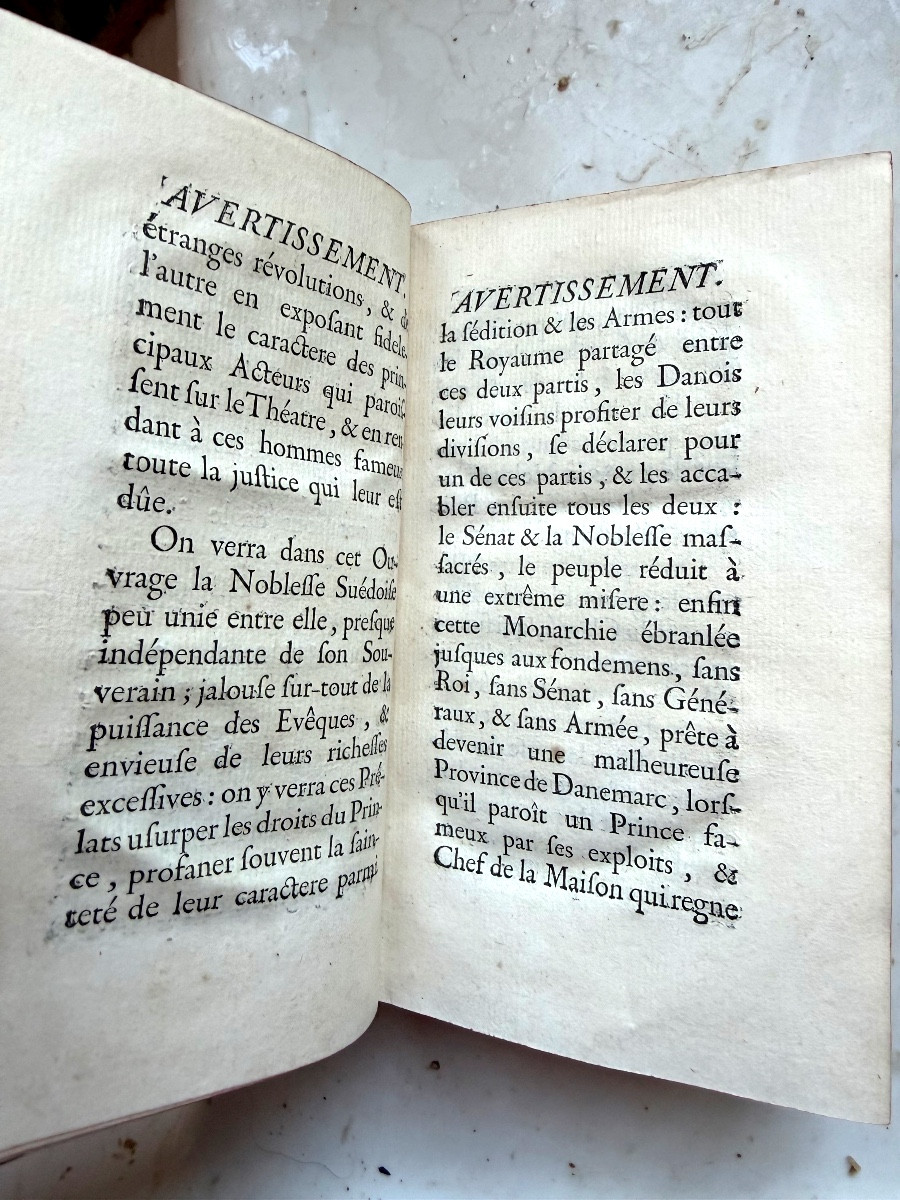 AVERTISSEMENT.
étranges révolutions, & de
l'autre en expoſant fidele-
ment le caractere des prin-
cipaux Acteurs qui paroiſ-
ſent ſur le Théatre, & en ren
dant à ces hommes fameux
toute la juſtice qui leur eſt
dûe.
On verra dans cet Ou-
vrage la Nobleſſe Suédoiſe
peu unie entre elle, preſque
indépendante de ſon Sou-
verain ; jalouſe ſur-tout de la
puiſſance des Evêques, &
envieuſe de leurs richeſſes
exceſſives : on y verra ces Pré-
lats uſurper les droits du Prin-
ce, profaner ſouvent la ſain-
teté de leur caractere parmi
AVERTISSEMENT.
la ſédition & les Armes : tout
le Royaume partagé entre
ces deux partis, les Danois
leurs voiſins profiter de leurs
diviſions, ſe déclarer pour
un de ces partis, & les acca-
bler enſuite tous les deux :
le Sénat & la Nobleſſe maſ-
ſacrés, le peuple réduit à
une extrême miſere : enfin
cette Monarchie ébranlée
juſques aux fondemens, ſans
Roi, ſans Sénat, ſans Géné-
raux, & ſans Armée, prête à
devenir une malheureuſe
Province de Danemarc, lorſ-
qu'il paroît un Prince fa-
meux par ſes exploits, &
Chef de la Maiſon qui regne